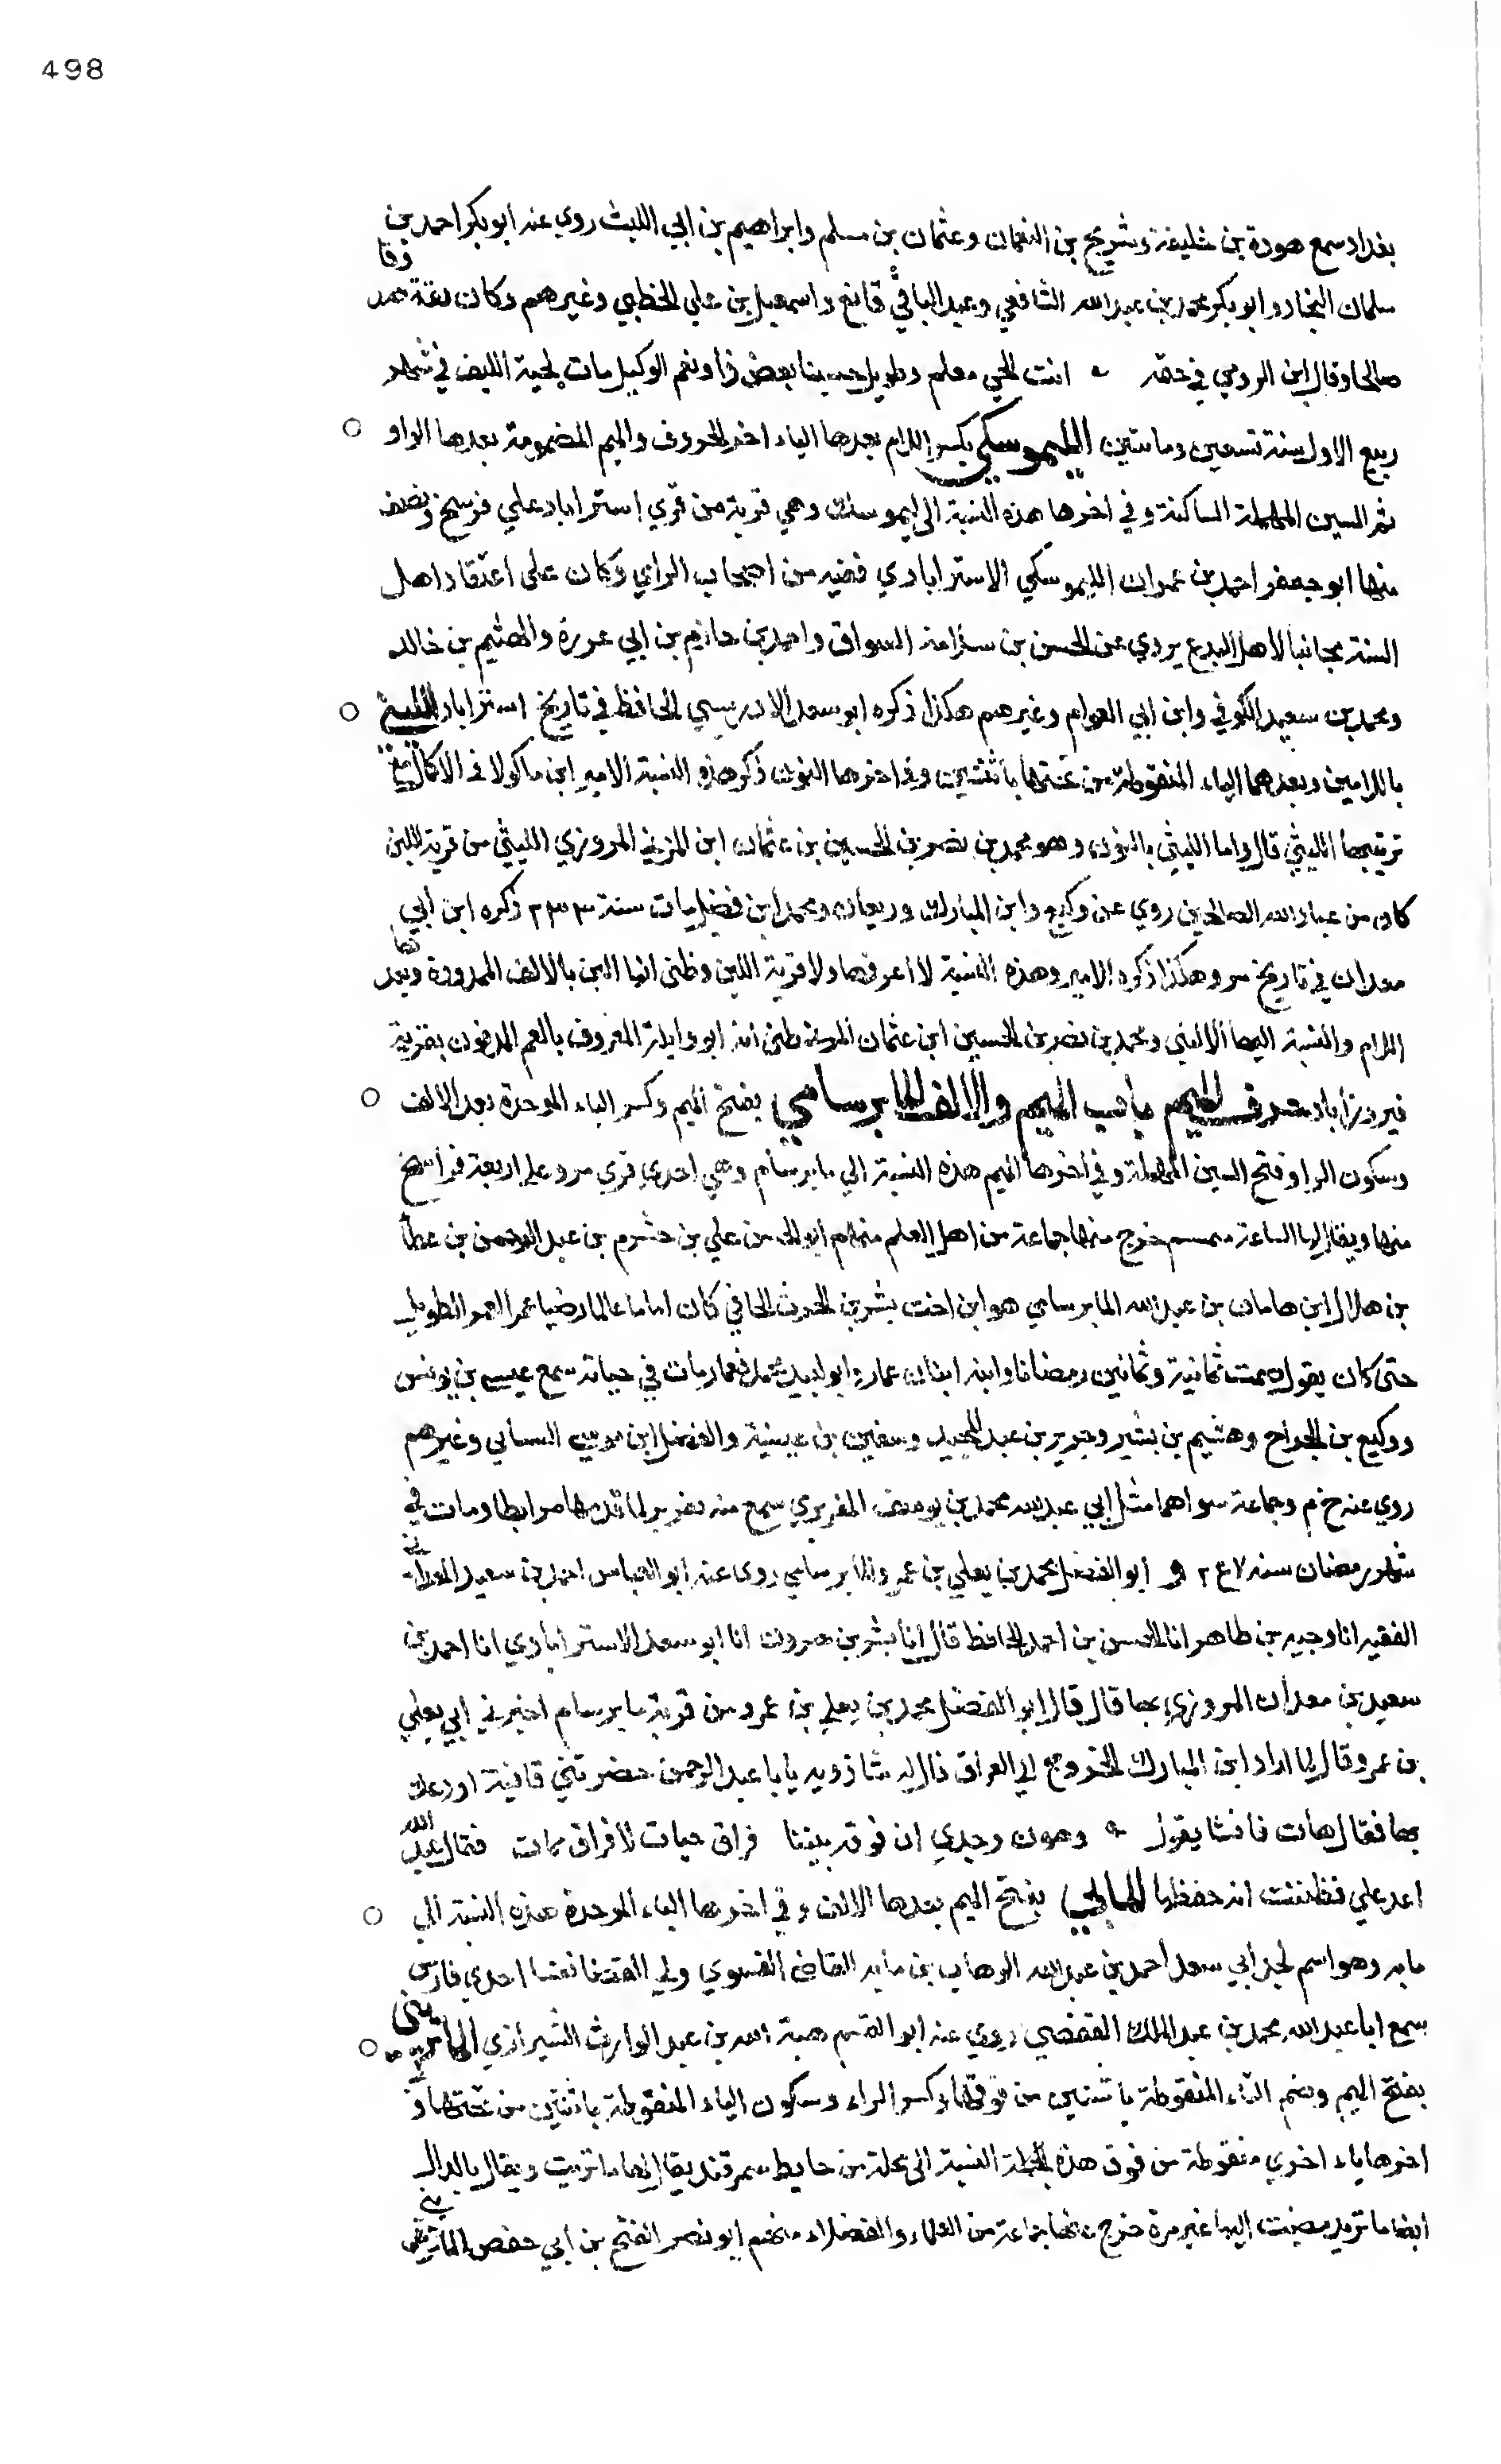 498
بغداد سمع هودة بن خليفة وشريح بن النعمان وعثمان بن مسلم وابراهيم بن ابي الليث روي عنه ابو بكر احمد بن
سلمان النجاد وابو بكر محمد بن عبد الله الشافعي وعبد الباقي قانع واسمعيل بن علي الخطبي وغيرهم وكان ثقة
صالحا وقال ابن الرومي في حقه انت الحي معلم وطويل حسبنا بعض ذا ونعم الوكيل مات لحية الليف في شهر
ربيع الاول سنة تسعين ومائتين الليموسكي بكسر اللام بعدها الياء اخر الحروف والميم المضمومة بعدها الواو
ثم السين المهملة الساكنة وفي اخرها هذه النسبة الى ليموسك وهي قرية من قري استراباد علي فرسخ ونصف
منها ابو جعفر احمد بن عمران الليموسكي الاسترابادي فقيه من اصحاب الراي وكان على اعتقاد اهل
السنة مجانبا لاهل البدع يروي عن الحسن بن سلامة السواق واحمد بن حازم بن ابي عرزة والهيثم بن خالد
ومحمد بن سعيد الكوفي وابن ابي العوام وغيرهم هكذا ذكره ابو سعد الادريسي الحافظ في تاريخ استراباد الليني
باللامين وبعدهما الياء المنقوطة من تحتها باثنتين وفي اخرها النون ذكر هذه النسبة الامير ابن ماكولا في الاكمال
ترتيبها الليثي قال واما الليني بالنون وهو محمد بن نصر بن الحسين بن عثمان ابن المزني المروزي الليني من قرية اللين
كان من عباد الله الصالحين روي عن وكيع وابن المبارك ومحمد ابن فضيل مات سنة ٢٣٣ ذكره ابن ابي
معدان في تاريخ مرو وهكذا ذكره الامير وهذه النسبة لا اعرفها ولا قرية اللين وظني انها البن بالالف الممدودة وبعد
اللام والنسبة اليها الاليني ومحمد بن نصر بن الحسين ابن عثمان المزني ظني انه ابو وابلة المعروف بالعم المدفون بقرية
فيروزاباد حرف الميم باب الميم والالف المابرسامي بفتح الميم وكسر الباء الموحدة بعد الالف
وسكون الرا وفتح السين المهملة وفي اخرها الميم هذه النسبة الي مابرسام وهي احدي قري مرو علي اربعة فراسخ
منها ويقال لها الساعة خرج منها جماعة من اهل العلم منهم ابو الحسن علي بن خشرم بن عبد الرحمن بن عطا
بن هلال ابن هامان بن عبد الله المابرسامي هو ابن اخت بشر بن الحرث الحافي كان اماما عالما رضيا عمر العمر الطويل
حتى كان يقول صمت ثمانية وثمانين رمضانا وابنه ابنان عمار وابو لبيد محمد فعمار مات في حياته سمع عيسى بن يونس
ووكيع بن الجراح وهشيم بن بشير وجرير بن عبد الحميد وسفين بن عيينة والفضل ابن موسي السيناني وغيرهم
روي عنه خ م وجماعة سواهما مثل ابي عبد الله محمد بن يوسف الفربري سمع منه بفربر لما قدمها مرابطا ومات في
شهر رمضان سنه ٢٤٧ و ابو الفضل محمد بن يعلي بن عمرو المابرسامي روى عنه ابو العباس احمد بن سعيد المعداني
الفقيه انا وجيه بن طاهر انا الحسن بن احمد الحافظ قال انا بشر بن هرون انا ابو سعد الاسترابادي انا احمد بن
سعيد بن معدان المروزي بها قال قال ابو الفضل محمد بن يعلي بن عمرو من قرية مابرسام اخبرني ابي يعلي
بن عمرو قال لما اراد ابن المبارك الخروج الي العراق قال له شاذويه يابا عبد الرحمن حضرتني قافية اودعك
بها فقال هات فانشا يقول وهون وجدي ان فرقة بيننا فراق حيات لا فراق ممات فقال عبد الله
اعد علي فظننت انه حفظها المابي بفتح الميم بعدها الالف وفي اخرها الباء الموحدة هذه النسبة الي
مابه وهو اسم لجد ابي سعد احمد بن عبد الله الوهاب بن مابه القاضي الفسوي ولي القضا بفسا احدي فارس
سمع ابا عبد الله محمد بن عبد الملك القفصي روي عنه ابو القسم هبة الله بن عبد الوارث الشيرازي الماتريتي
بفتح الميم وضم التاء المنقوطة باثنتين من فوقها وكسر الراء وسكون الياء المنقوطة باثنتين من تحتها و
اخرها ياء اخري منقوطة من فوق هذه النسبة الى محلة من حايط سمرقند يقال لها ماتريت ويقال بالدال
ايضا ماتريد مضيت اليها غير مرة خرج منها جماعة من العلماء والفضلاء منهم ابو نصر الفتح بن ابي حفص الماتريتي